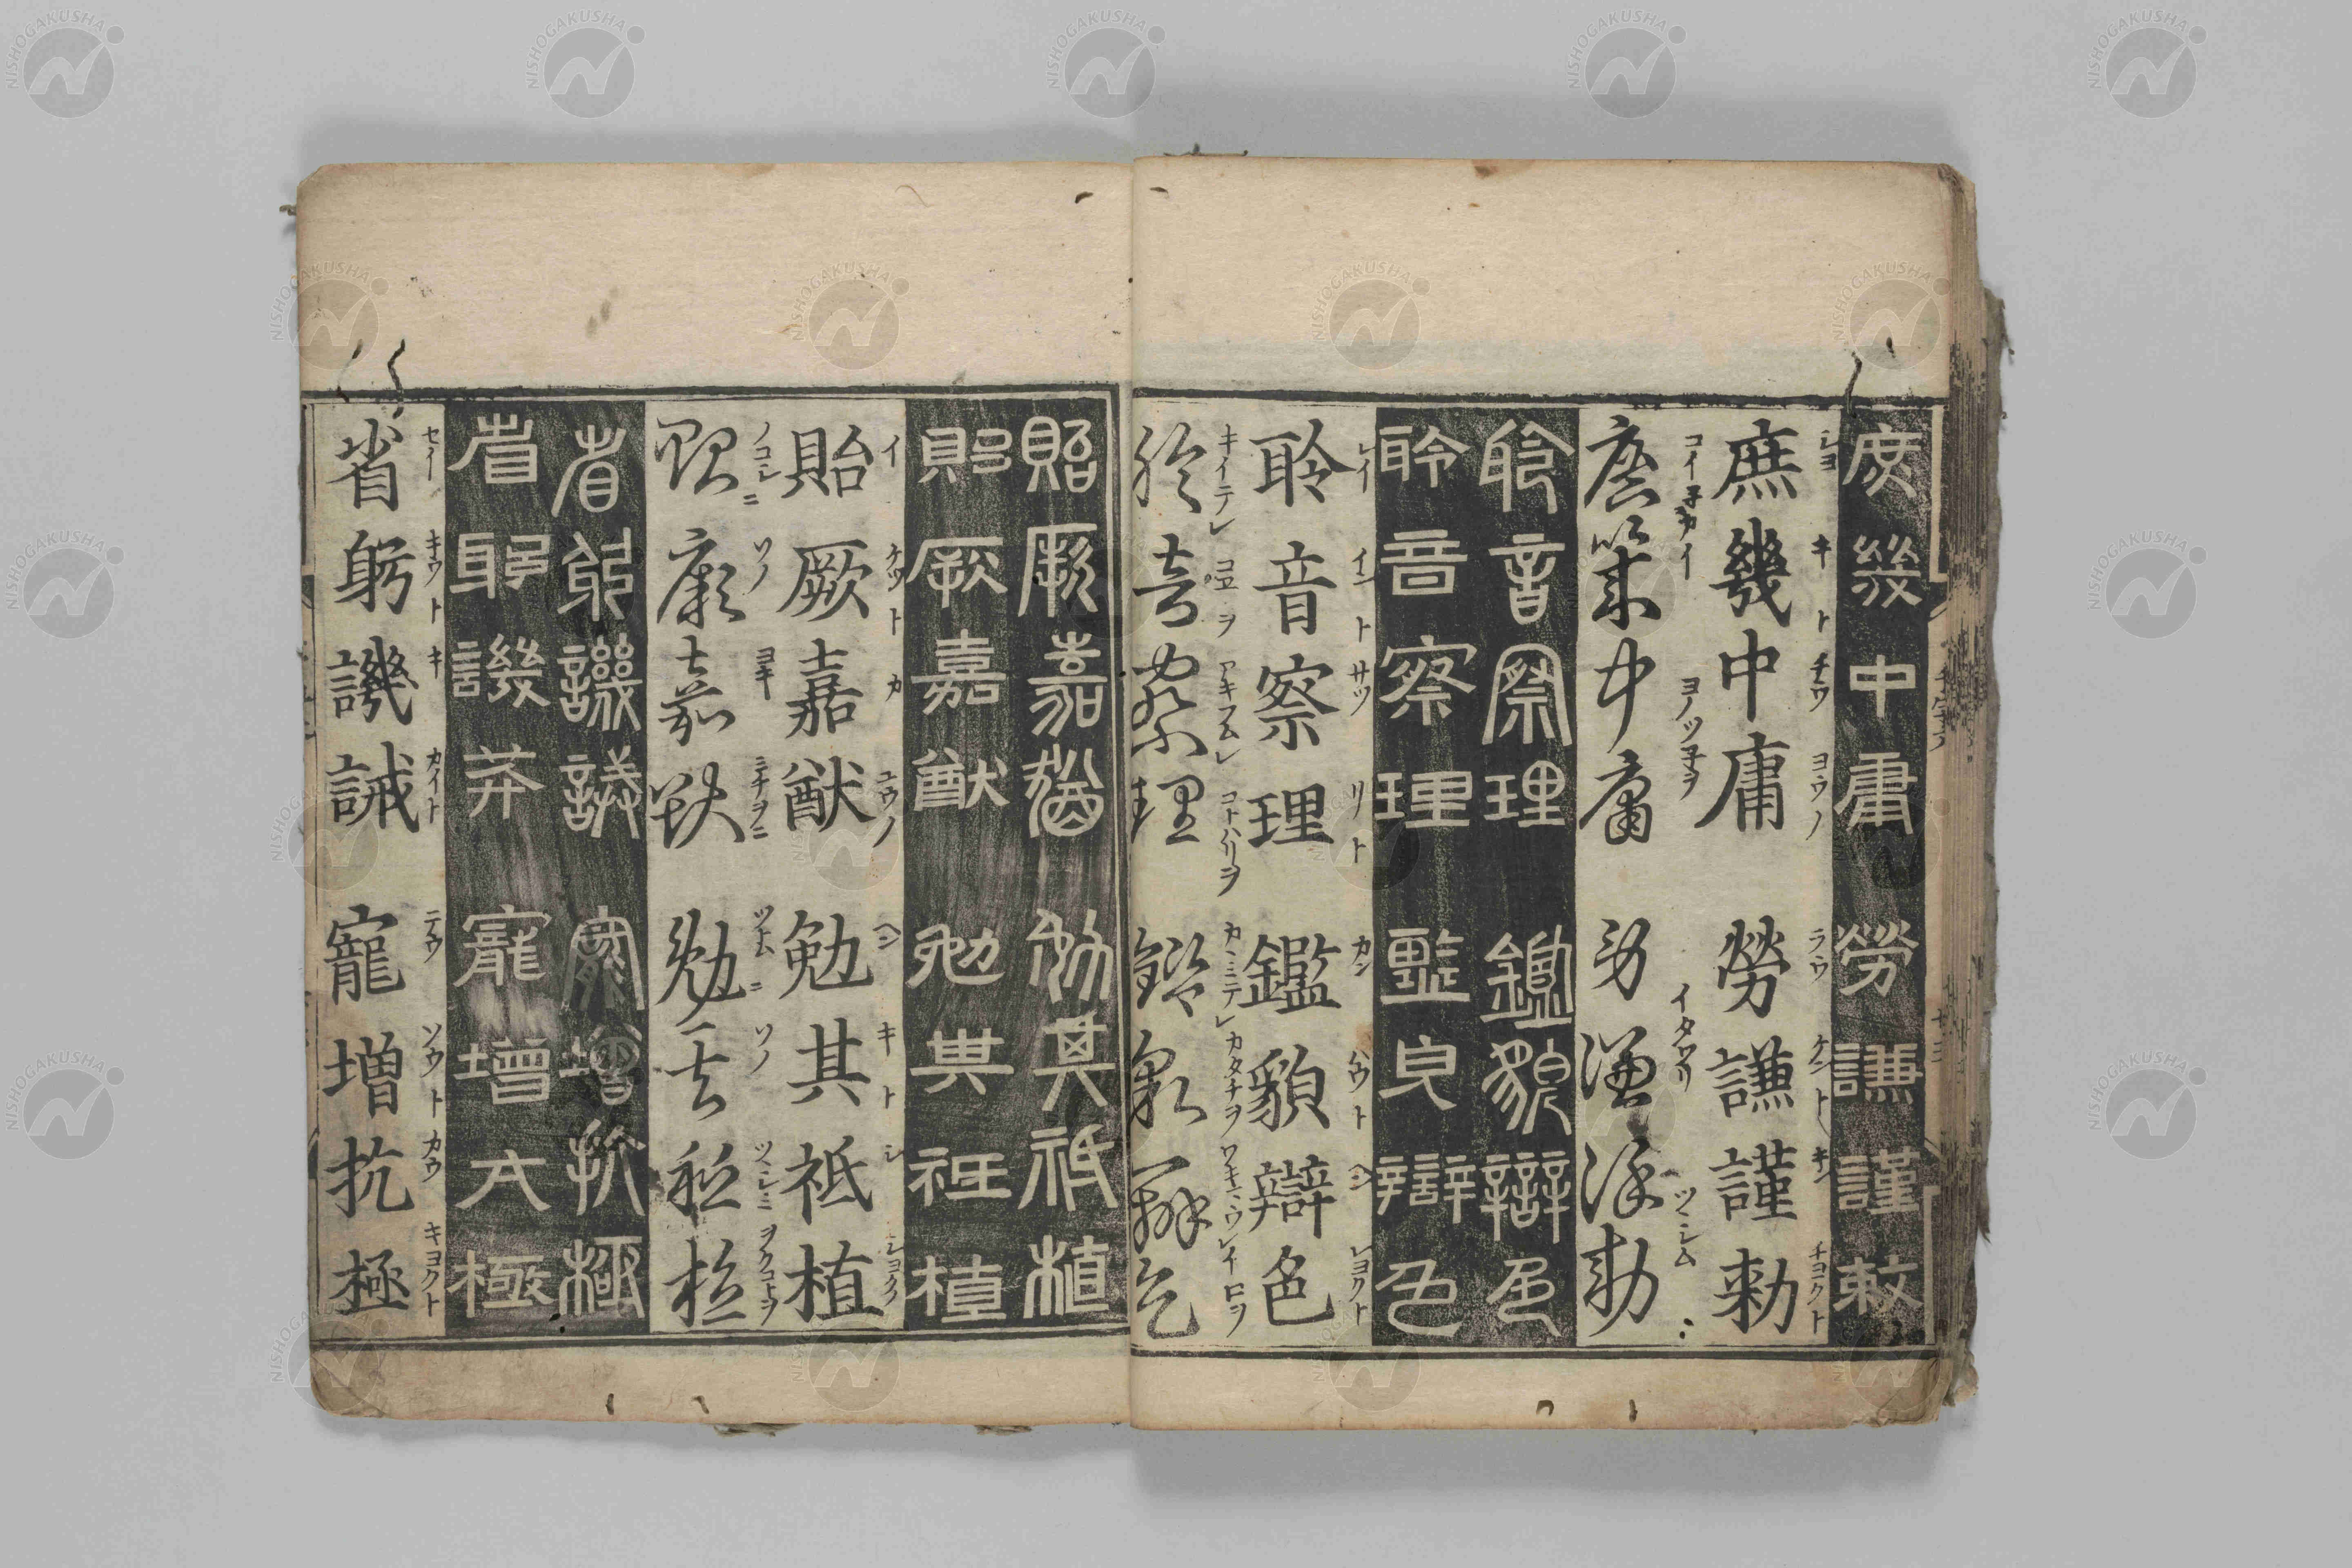 庶幾中庸 勞謙謹敕
ショ キ ト チウ ヨウノ ラウ ケント キン チヨクト
庶幾中庸 勞謙謹勅
庶幾中庸 勞謙謹勅
聆音察理 鑑貌辯色
聆音察理 鑑皃辯色
レイ イント サツ リト カン ハウト ヘン シヨクト
聆音察理 鑑貌辯色
キイテレ コヱヲ アキラムレ コトハリヲ カヽミテレ カタチヲ ワキマウレイロヲ
聆音察理 鑑貌辨色
貽厥嘉猷 勉其祗植
貽厥嘉猷 勉其祗植
イ ケツト カ ユウノ ヘン キト シ シヨク
貽厥嘉猷 勉其祗植
ノコシニ ソノ ヨキ ミチヲニ ツトムニ ソノ ツヽシミ ヲクコトヲ
貽厥嘉猷 勉其祗植
省躬譏誡 寵增抗極
省躬譏 寵增亢極
セイ キウト キ カイト テウ ソウト カウ キヨクト
省躬譏誡 寵増抗極
NISHOGAKUSHA